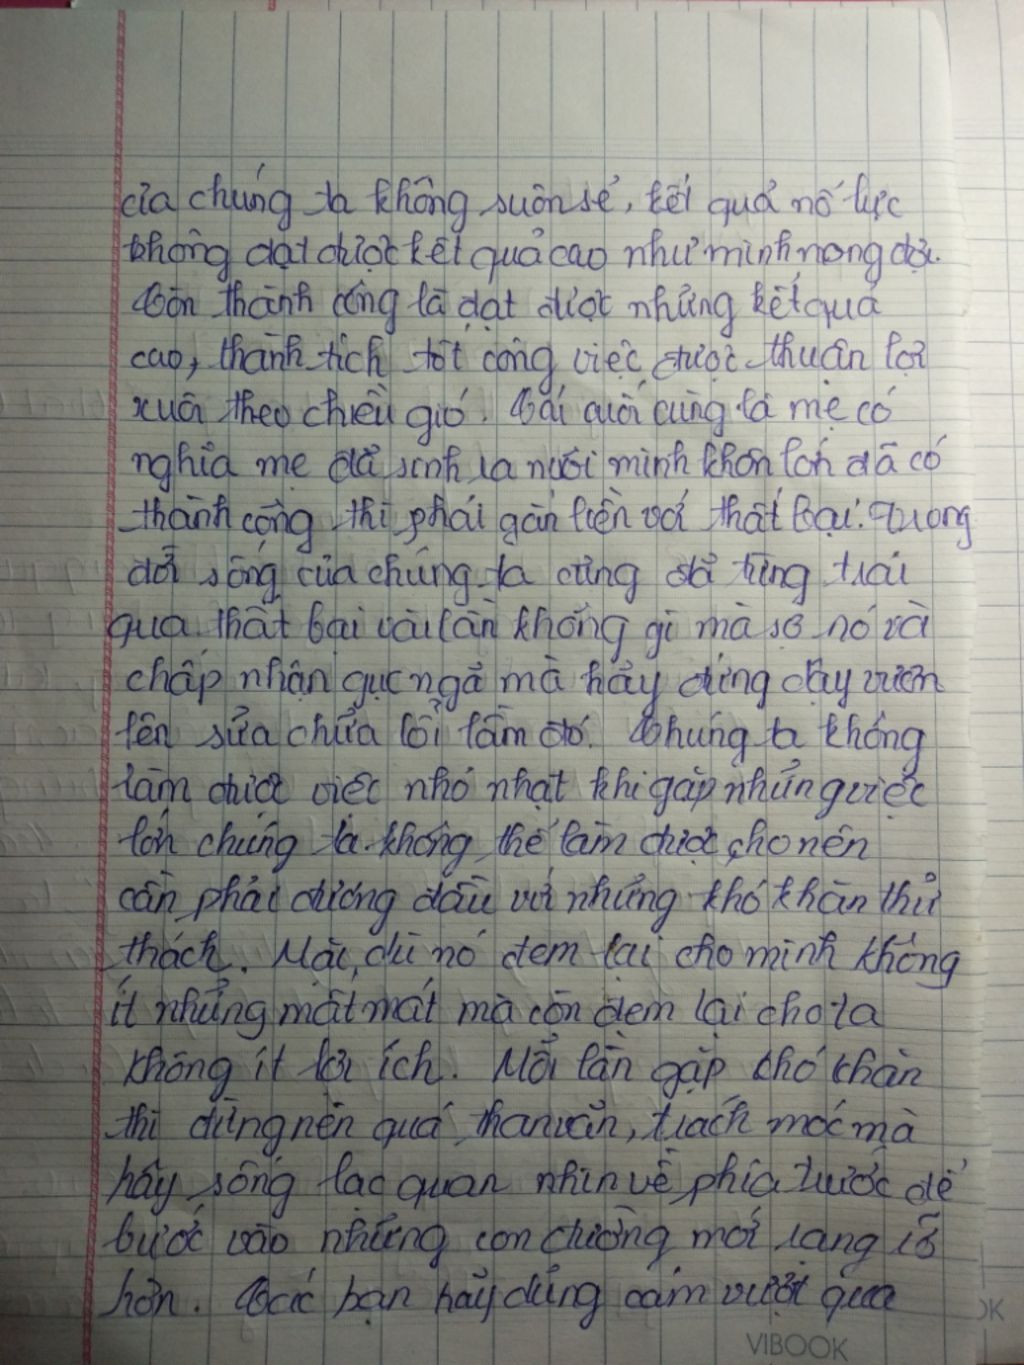 của chúng ta không suôn sẻ, kết quả nổ lực
không đạt được kết quả cao như mình mong đợi.
Còn thành công là đạt được những kết quả
cao, thành tích tốt công việc được thuận lợi
xuôi theo chiều gió. Cái cuối cùng là mẹ có
nghĩa mẹ đã sinh ra nuôi mình khôn lớn đã có
thành công thì phải gắn liền với thất bại. Trong
đời sống của chúng ta cũng đã từng trải
qua thất bại vài lần không gì mà sợ nó và
chấp nhận gục ngã mà hãy đứng dậy vươn
lên sửa chửa lỗi lầm đó. Chúng ta không
làm được việc nhỏ nhặt khi gặp những việc
lớn chúng ta không thể làm được cho nên
cần phải đương đầu với những khó khăn thử
thách. Mặc dù nó đem lại cho mình không
ít những mất mát mà còn đem lại cho ta
không ít lợi ích. Mỗi lần gặp khó khăn
thì đừng nên quá than vãn, trách móc mà
hãy sống lạc quan nhìn về phía trước để
bước vào những con đường mới rạng rỡ
hơn. Các bạn hãy dũng cảm vượt qua
VIBOOK
OK